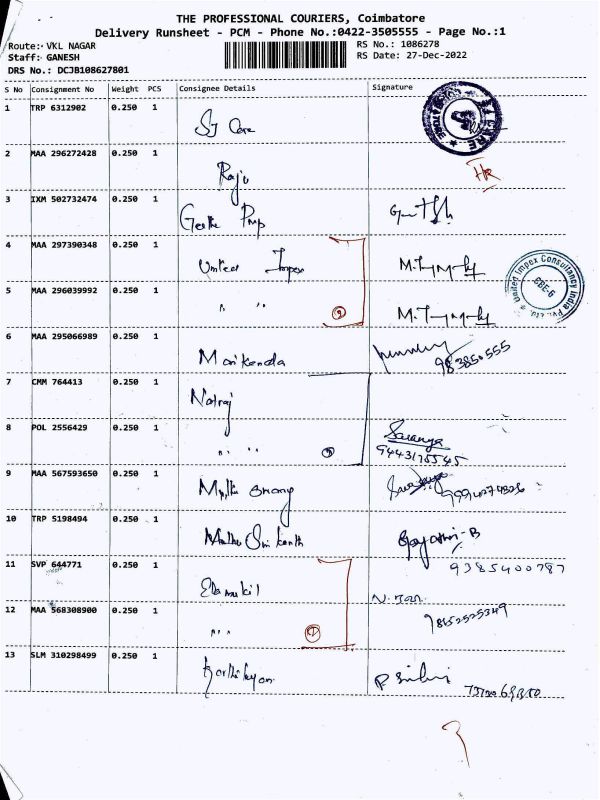 THE PROFESSIONAL COURIERS, Coimbatore
Delivery Runsheet - PCM - Phone No.:0422-3505555 - Page No.:1
Route: VKL NAGAR
Staff: GANESH
DRS No.: DCJB108627801
RS No.: 1086278
RS Date: 27-Dec-2022
S No Consignment No Weight PCS Consignee Details Signature
1 TRP 6312902 0.250 1 SJ Care
2 MAA 296272428 0.250 1 Raju
3 IXM 502732474 0.250 1 Geetha Prop
4 MAA 297390348 0.250 1 United Impex
United Impex Consultancy India Pvt. Ltd.
CBE-6
5 MAA 296039992 0.250 1 " "
6 MAA 295066989 0.250 1 Manikanda
7 CMM 764413 0.250 1 Natraj
8 POL 2556429 0.250 1 " " Saranya
9443175545
9 MAA 567593650 0.250 1
10 TRP 5198494 0.250 1 Muthu Srikanth Gayathri-B
9385400787
11 SVP 644771 0.250 1 Elamukil
12 MAA 568308900 0.250 1 " " 98652525349
13 SLM 310298499 0.250 1 Karthikyan